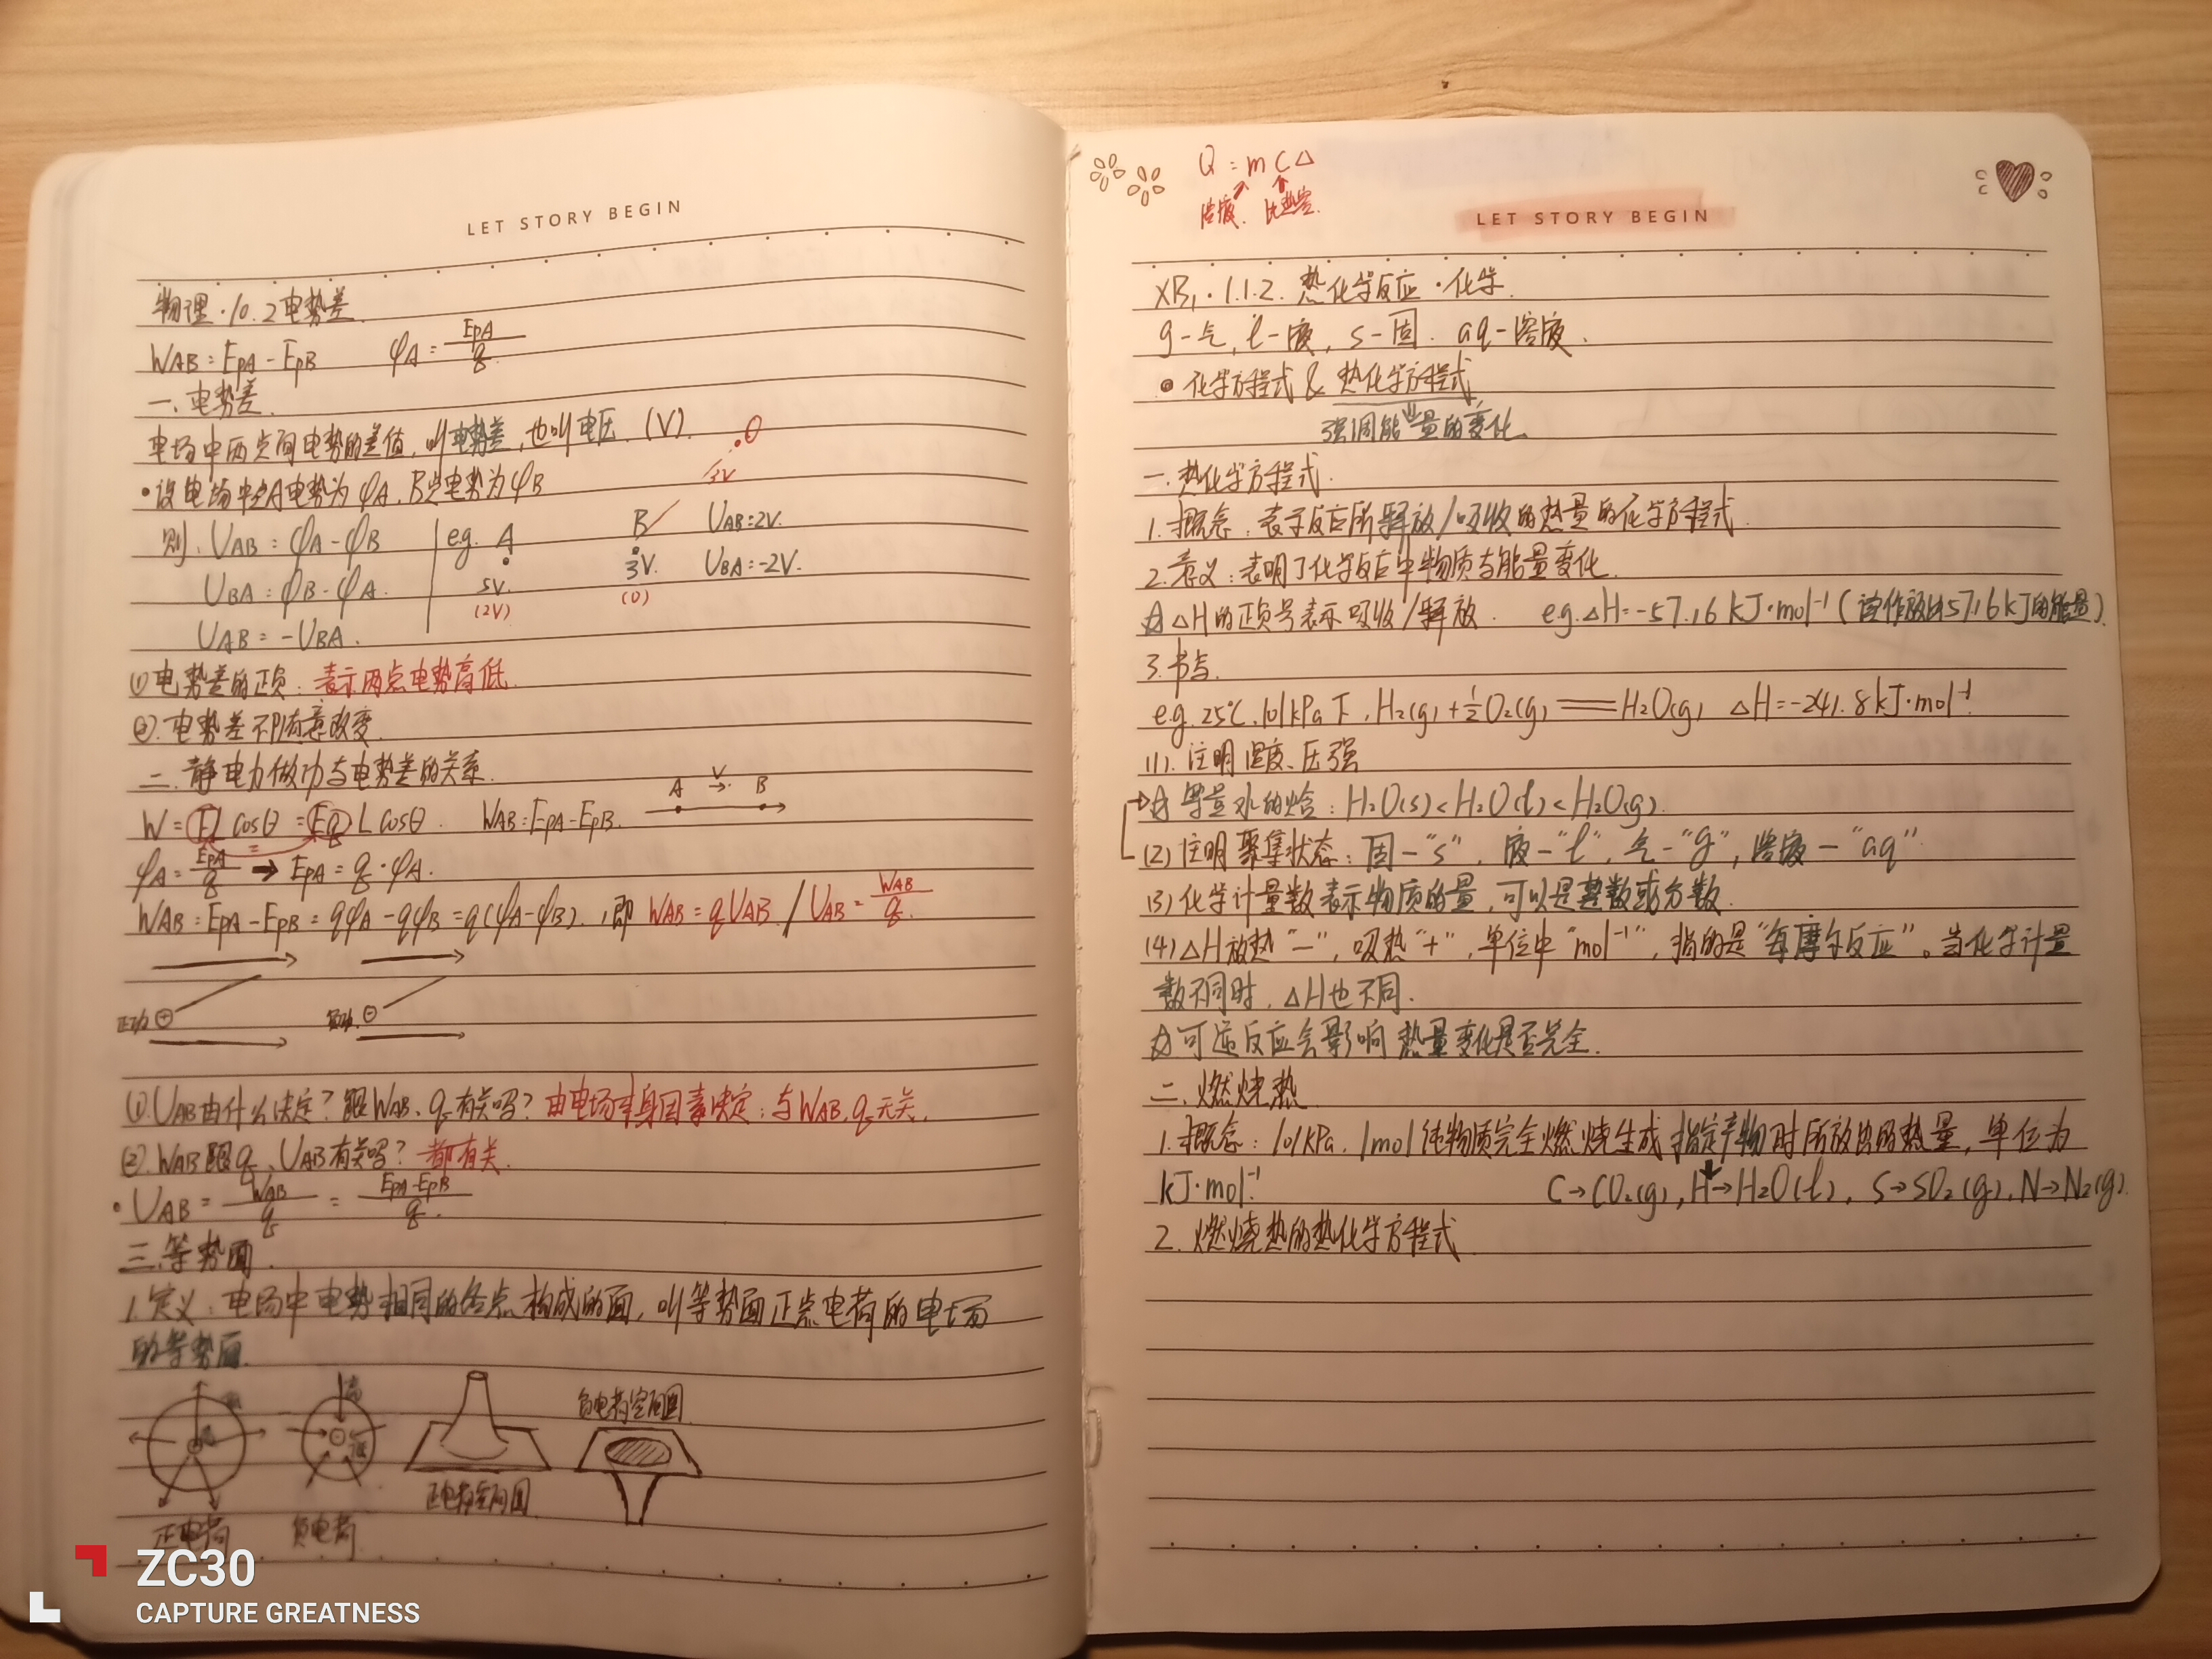 LET STORY BEGIN
物理·10.2电势差
WAB=EpA-EpB φA=EpA/q
一、电势差
电场中两点间电势的差值,叫电势差,也叫电压.(V).
0
3V
•设电场中A电势为φA,B点电势为φB
则:UAB=φA-φB e.g. A B UAB=2V.
UBA=φB-φA. 5V. 3V. UBA=-2V.
(2V) (0)
UAB=-UBA.
①电势差的正负:表示两点电势高低.
②.电势差不随意改变.
二.静电力做功与电势差的关系.
A V B
W=FLcosθ=EqLcosθ. WAB=EpA-EpB.
φA=EpA/q → EpA=q·φA.
WAB=EpA-EpB=qφA-qφB=q(φA-φB).,即 WAB=qUAB / UAB=WAB/q.
正功 ⊕ 负功 ⊖
①.UAB由什么决定?跟WAB、q有关吗?由电场本身因素决定;与WAB,q无关.
②.WAB跟q、UAB有关吗?都有关.
•UAB=WAB/q=EpA-EpB/q.
三.等势面.
1.定义:电场中电势相同的各点构成的面,叫等势面正点电荷的电场
的等势面.
高
低
负电荷空间图
正电荷空间图
正电荷 负电荷
ZC30
CAPTURE GREATNESS
Q=mC△
溶液. 比热容.
LET STORY BEGIN
XB₁·1.1.2.热化学反应·化学.
g-气,l-液,s-固.aq-溶液.
•化学方程式&热化学方程式
强调能量的变化.
一.热化学方程式.
1.概念:表示反应所释放/吸收的热量的化学方程式.
2.意义:表明了化学反应中物质与能量变化.
☆△H的正负号表示吸收/释放. e.g.△H=-57.16kJ·mol⁻¹(读作放出57.16kJ的能量).
3.书写.
e.g.25℃.101kPa下,H₂(g)+½O₂(g)══H₂O(g) △H=-241.8kJ·mol⁻¹.
(1).注明温度、压强
→☆等量水的焓:H₂O(s)<H₂O(l)<H₂O(g).
(2)注明聚集状态:固-"s",液-"l",气-"g",溶液-"aq"
(3)化学计量数表示物质的量,可以是整数或分数.
(4)△H放热"-",吸热"+",单位中"mol⁻¹",指的是"每摩尔反应"。当化学计量
数不同时,△H也不同.
☆可逆反应会影响热量变化是否完全.
二.燃烧热
1.概念:101kPa.1mol纯物质完全燃烧生成指定产物时所放出的热量,单位为
kJ·mol⁻¹. C→CO₂(g),H→H₂O(l),S→SO₂(g),N→N₂(g).
2.燃烧热的热化学方程式